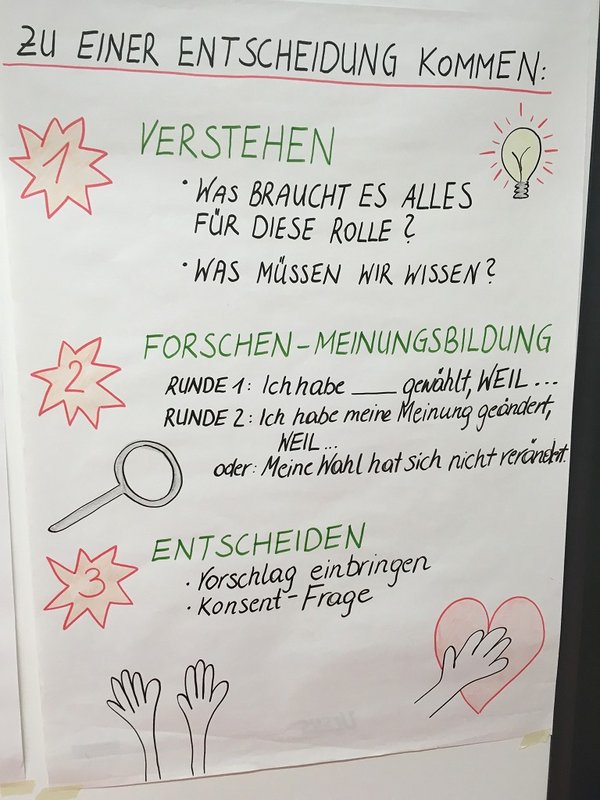 ZU EINER ENTSCHEIDUNG KOMMEN:
1
VERSTEHEN
• WAS BRAUCHT ES ALLES
FÜR DIESE ROLLE?
• WAS MÜSSEN WIR WISSEN?
2
FORSCHEN-MEINUNGSBILDUNG
RUNDE 1: Ich habe ___ gewählt, WEIL ...
RUNDE 2: Ich habe meine Meinung geändert,
WEIL ...
oder: Meine Wahl hat sich nicht verändert.
3
ENTSCHEIDEN
• Vorschlag einbringen
• Konsent-Frage